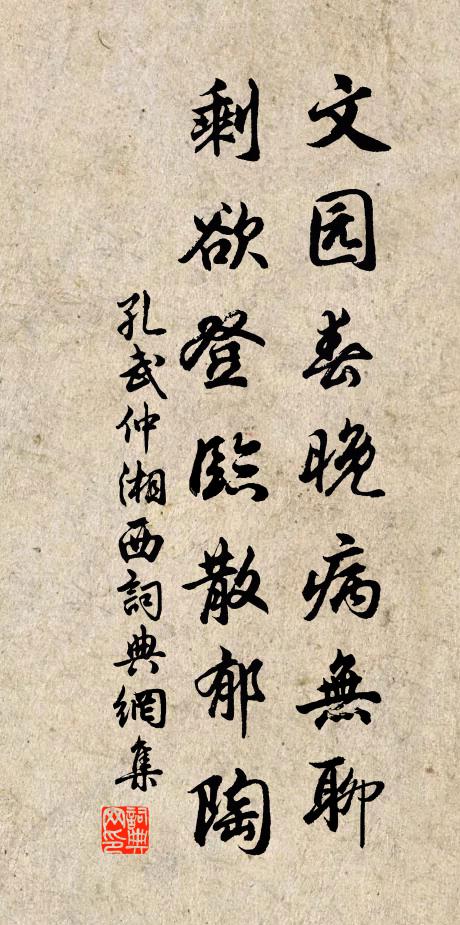 文园春晚病無聊
剩欲登臨散郁陶
孔武仲湘西詞典網集
詞典網印